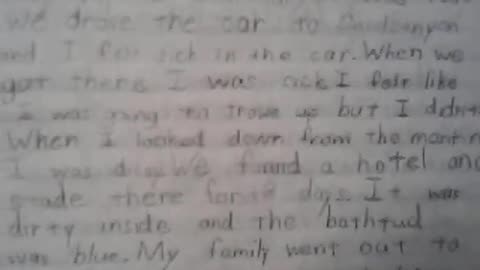 we drove the car to
and I felt sick in the car. When we
got there I was sick I felt like
I was going to trowe up but I didn't
When I looked down from the
I was dizy We found a hotel and
there for 18 days. It was
dirty inside and the bathtud
was blue. My family went out to